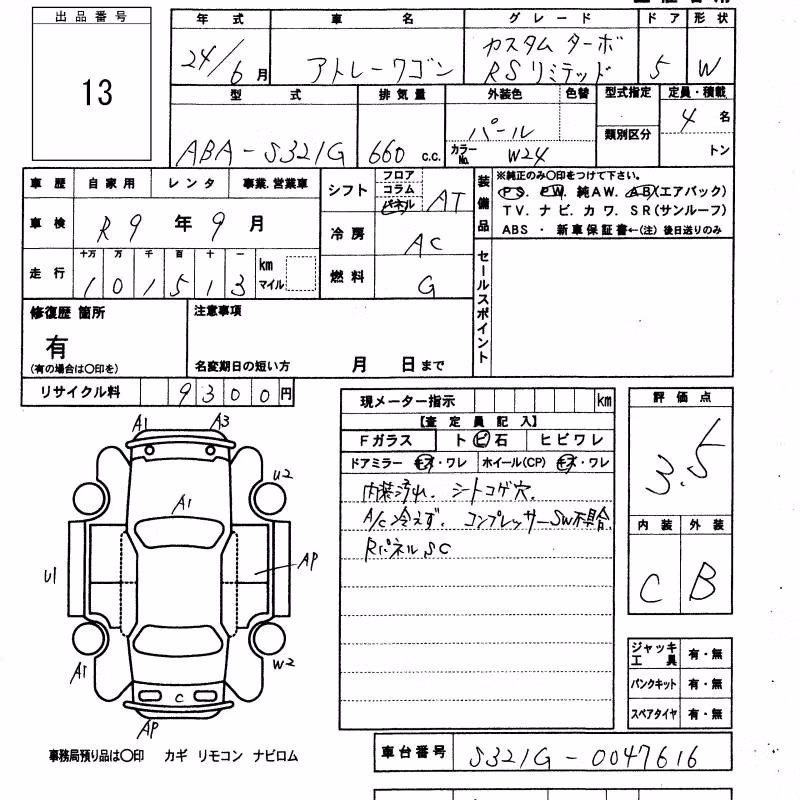 出品番号
13
年式 車名 グレード ドア 形状
24/6月 アトレーワゴン カスタム ターボ RSリミテッド 5 W
型式 排気量 外装色 色替 型式指定 定員・積載
類別区分
ABA-S321G 660 c.c. パール 4名
カラーNo. W24 トン
車歴 自家用 レンタ 事業.営業車
車検 R9年9月
走行 十万 万 千 百 十 一
101513 km マイル
シフト フロア コラム パネル AT
冷房 AC
燃料 G
装備品
※純正のみ〇印をつけて下さい。
PS. PW. 純AW. AB(エアバック)
TV. ナビ. カワ. SR(サンルーフ)
ABS ・ 新車保証書←(注) 後日送りのみ
セールスポイント
修復歴 箇所
有
(有の場合は〇印を)
注意事項
名変期日の短い方 月 日まで
リサイクル料 9300円
現メーター指示 km
【査定員記入】
Fガラス ト ビ 石 ヒビワレ
ドアミラー キズ・ワレ ホイール(CP) キズ・ワレ
内装汚れ. シートコゲ穴.
A/C冷えず. コンプレッサーSW不具合.
Rパネル SC
評価点
3.5
内装 外装
C B
A1 A3
U2
A1
U1 AP
A1 W2
C
AP
ジャッキ工具 有・無
パンクキット 有・無
スペアタイヤ 有・無
事務局預り品は〇印 カギ リモコン ナビロム
車台番号 S321G-0047616